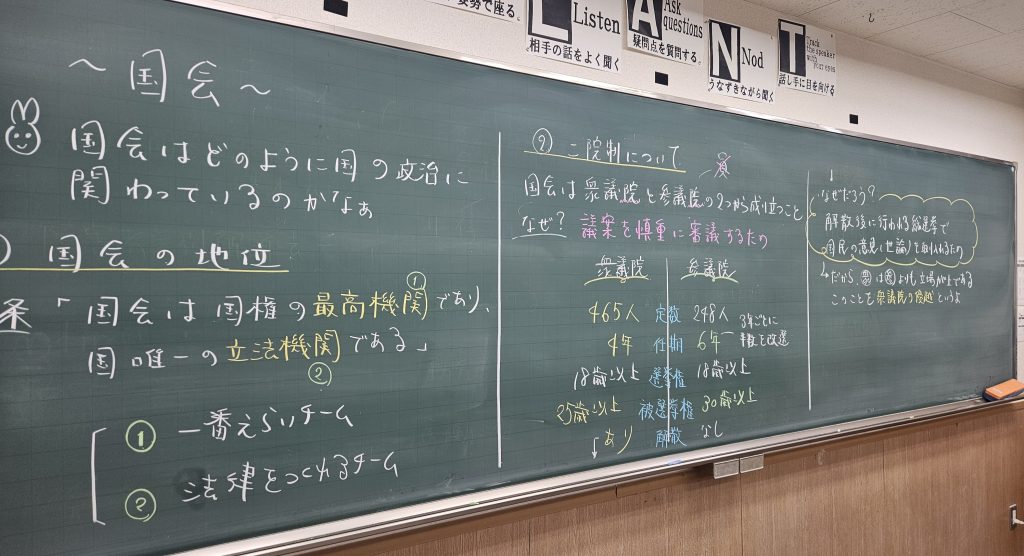 姿勢で座る。
L Listen
相手の話をよく聞く
A Ask questions
疑問点を質問する。
N Nod
うなずきながら聞く
T Track the speaker with your eyes
話し手に目を向ける
～国会～
国会はどのように国の政治に
関わっているのかなぁ
) 国会の地位
条「国会は国権の最高機関①であり、
国唯一の立法機関②である」
① 一番えらいチーム
② 法律をつくれるチーム
② 二院制について
国会は衆議院と参議院の2つから成り立つこと
なぜ? 議案を慎重に審議するため
衆議院 参議院
465人 定数 248人
4年 任期 6年 ー 3年ごとに半数を改選
18歳以上 選挙権 18歳以上
25歳以上 被選挙権 30歳以上
↓ あり 解散 なし
↓
なぜだろう?
解散後に行われる総選挙で
国民の意見(世論)を取り入れるため
↳だから、衆は参よりも立場が上である
このことを衆議院の優越というよ